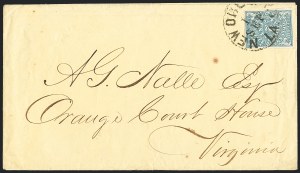 NEW O
LA
A.G. Nalle Esq
Orange Court House
Virginia